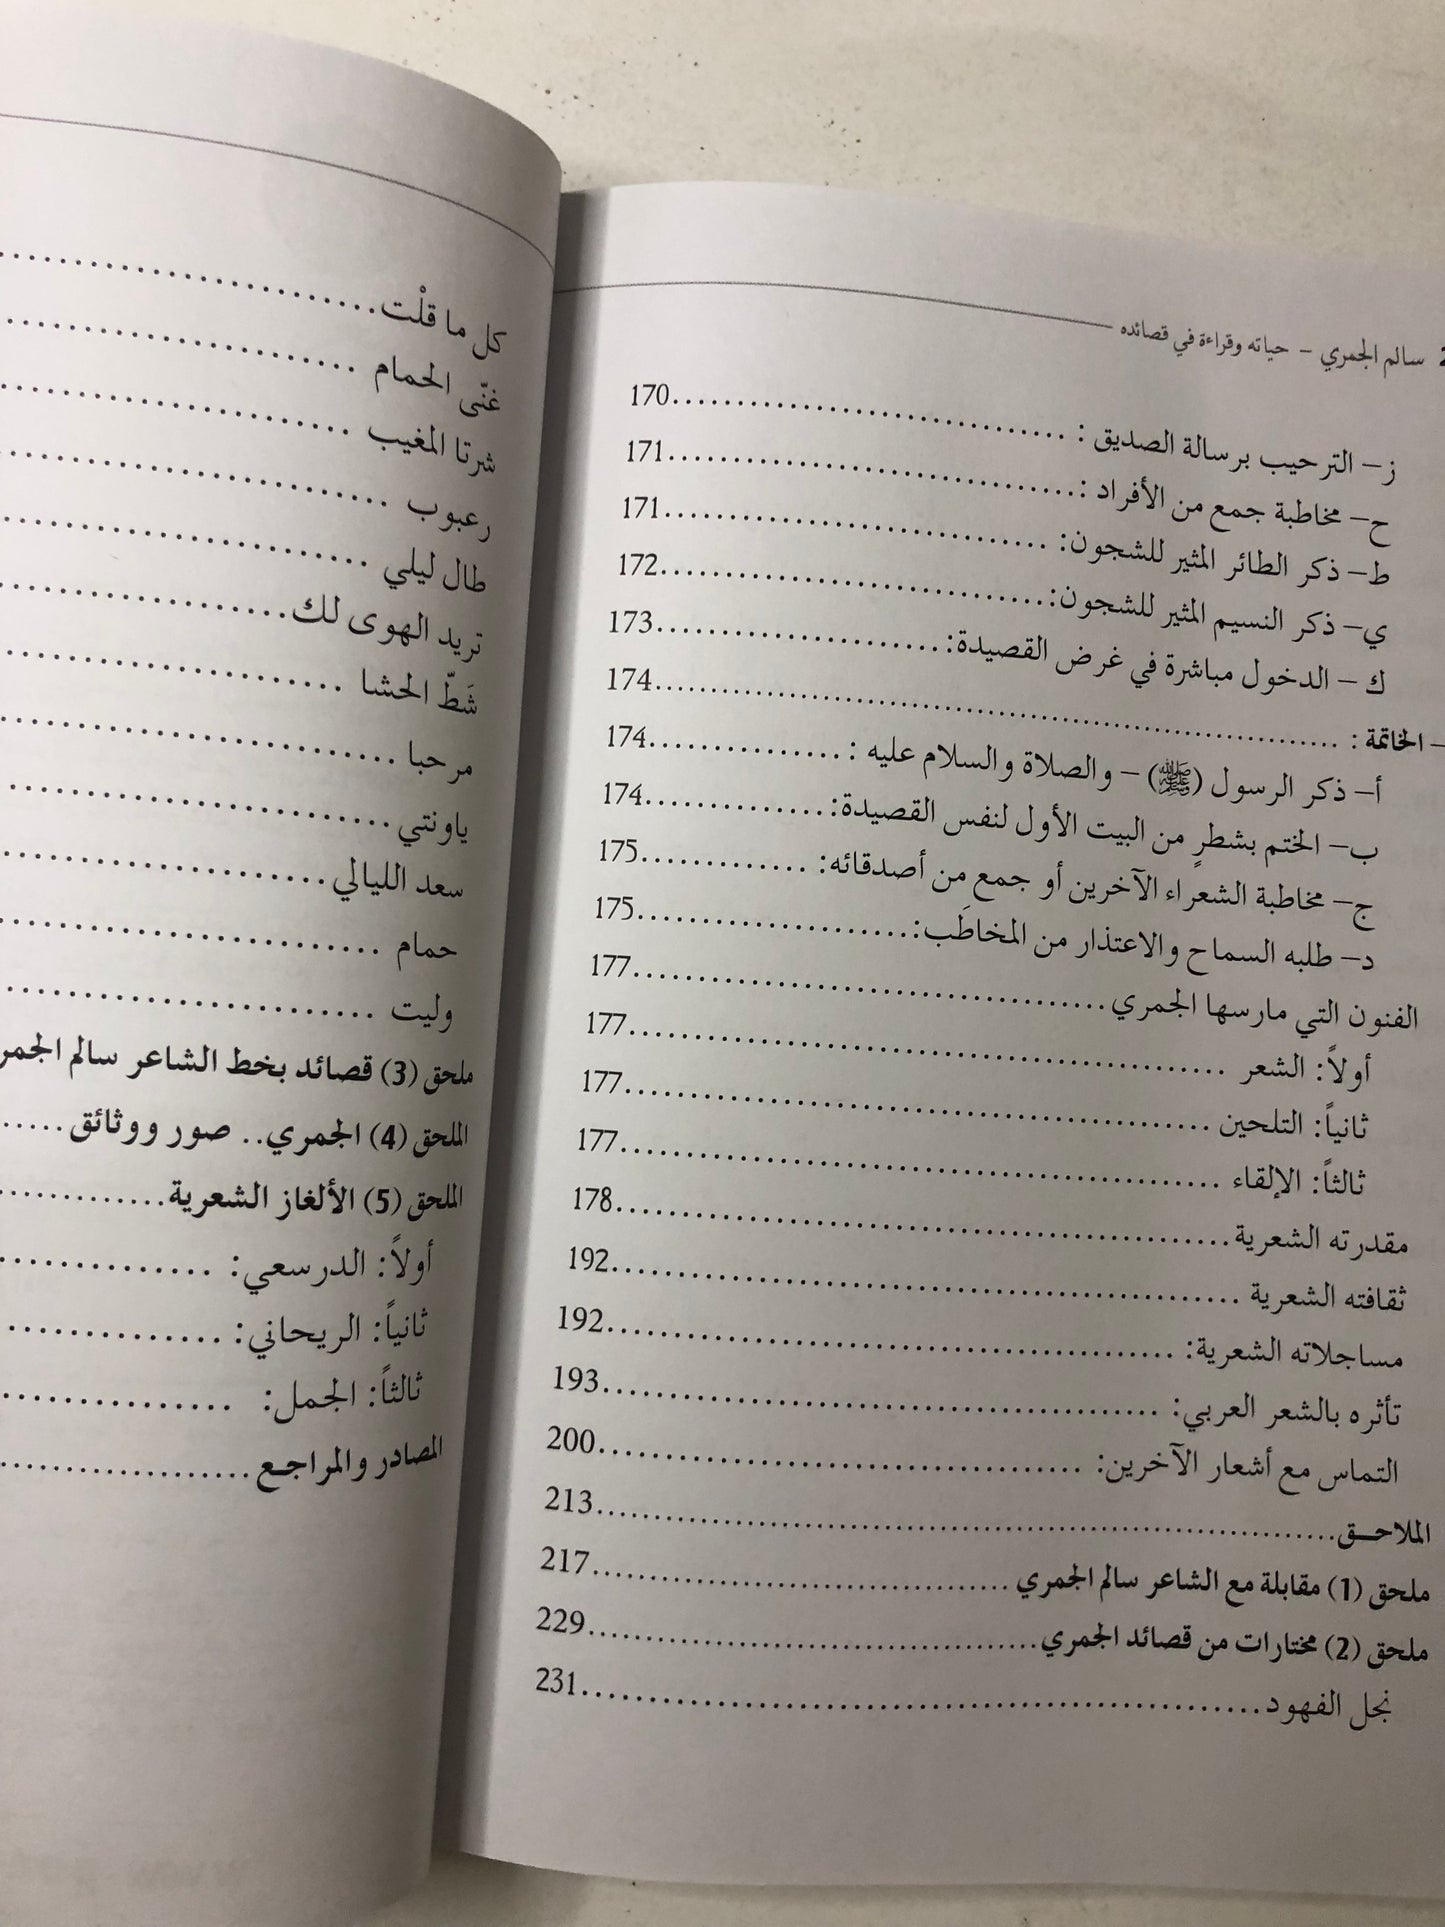 سالم الجمري – حياته وقراءة في قصائده
ز– الترحيب برسالة الصديق : ..............................170
ح– مخاطبة جمع من الأفراد :..............................171
ط– ذكر الطائر المثير للشجون: ..............................171
ي– ذكر النسيم المثير للشجون:..............................172
ك – الدخول مباشرة في غرض القصيدة:......................173
– الخاتمة : ..................................................174
أ– ذكر الرسول (ﷺ) – والصلاة والسلام عليه :...............174
ب– الختم بشطرٍ من البيت الأول لنفس القصيدة:..............174
ج– مخاطبة الشعراء الآخرين أو جمع من أصدقائه: .............175
د– طلبه السماح والاعتذار من المخاطَب:.....................175
الفنون التي مارسها الجمري....................................177
أولاً: الشعر ..............................................177
ثانياً: التلحين .............................................177
ثالثاً: الإلقاء .............................................177
مقدرته الشعرية..............................................178
ثقافته الشعرية ..............................................192
مساجلاته الشعرية: .........................................192
تأثره بالشعر العربي: .........................................193
التماس مع أشعار الآخرين: ...................................200
الملاحـــق.....................................................213
ملحق (1) مقابلة مع الشاعر سالم الجمري ......................217
ملحق (2) مختارات من قصائد الجمري..........................229
نجل الفهود..................................................231
كل ما قلْت............................
غنّى الحمام ............................
شرتا المغيب ............................
رعبوب ..............................
طال ليلي ............................
تريد الهوى لك......................
شَطّ الحشا ..........................
مرحبا ..............................
ياونتي..............................
سعد الليالي..........................
حمام ..............................
وليت ..............................
ملحق (3) قصائد بخط الشاعر سالم الجمر
الملحق (4) الجمري.. صور ووثائق.....
الملحق (5) الألغاز الشعرية.............
أولاً: الدرسعي: ...............
ثانياً: الريحاني: ................
ثالثاً: الجمل: ................
المصادر والمراجـع...................